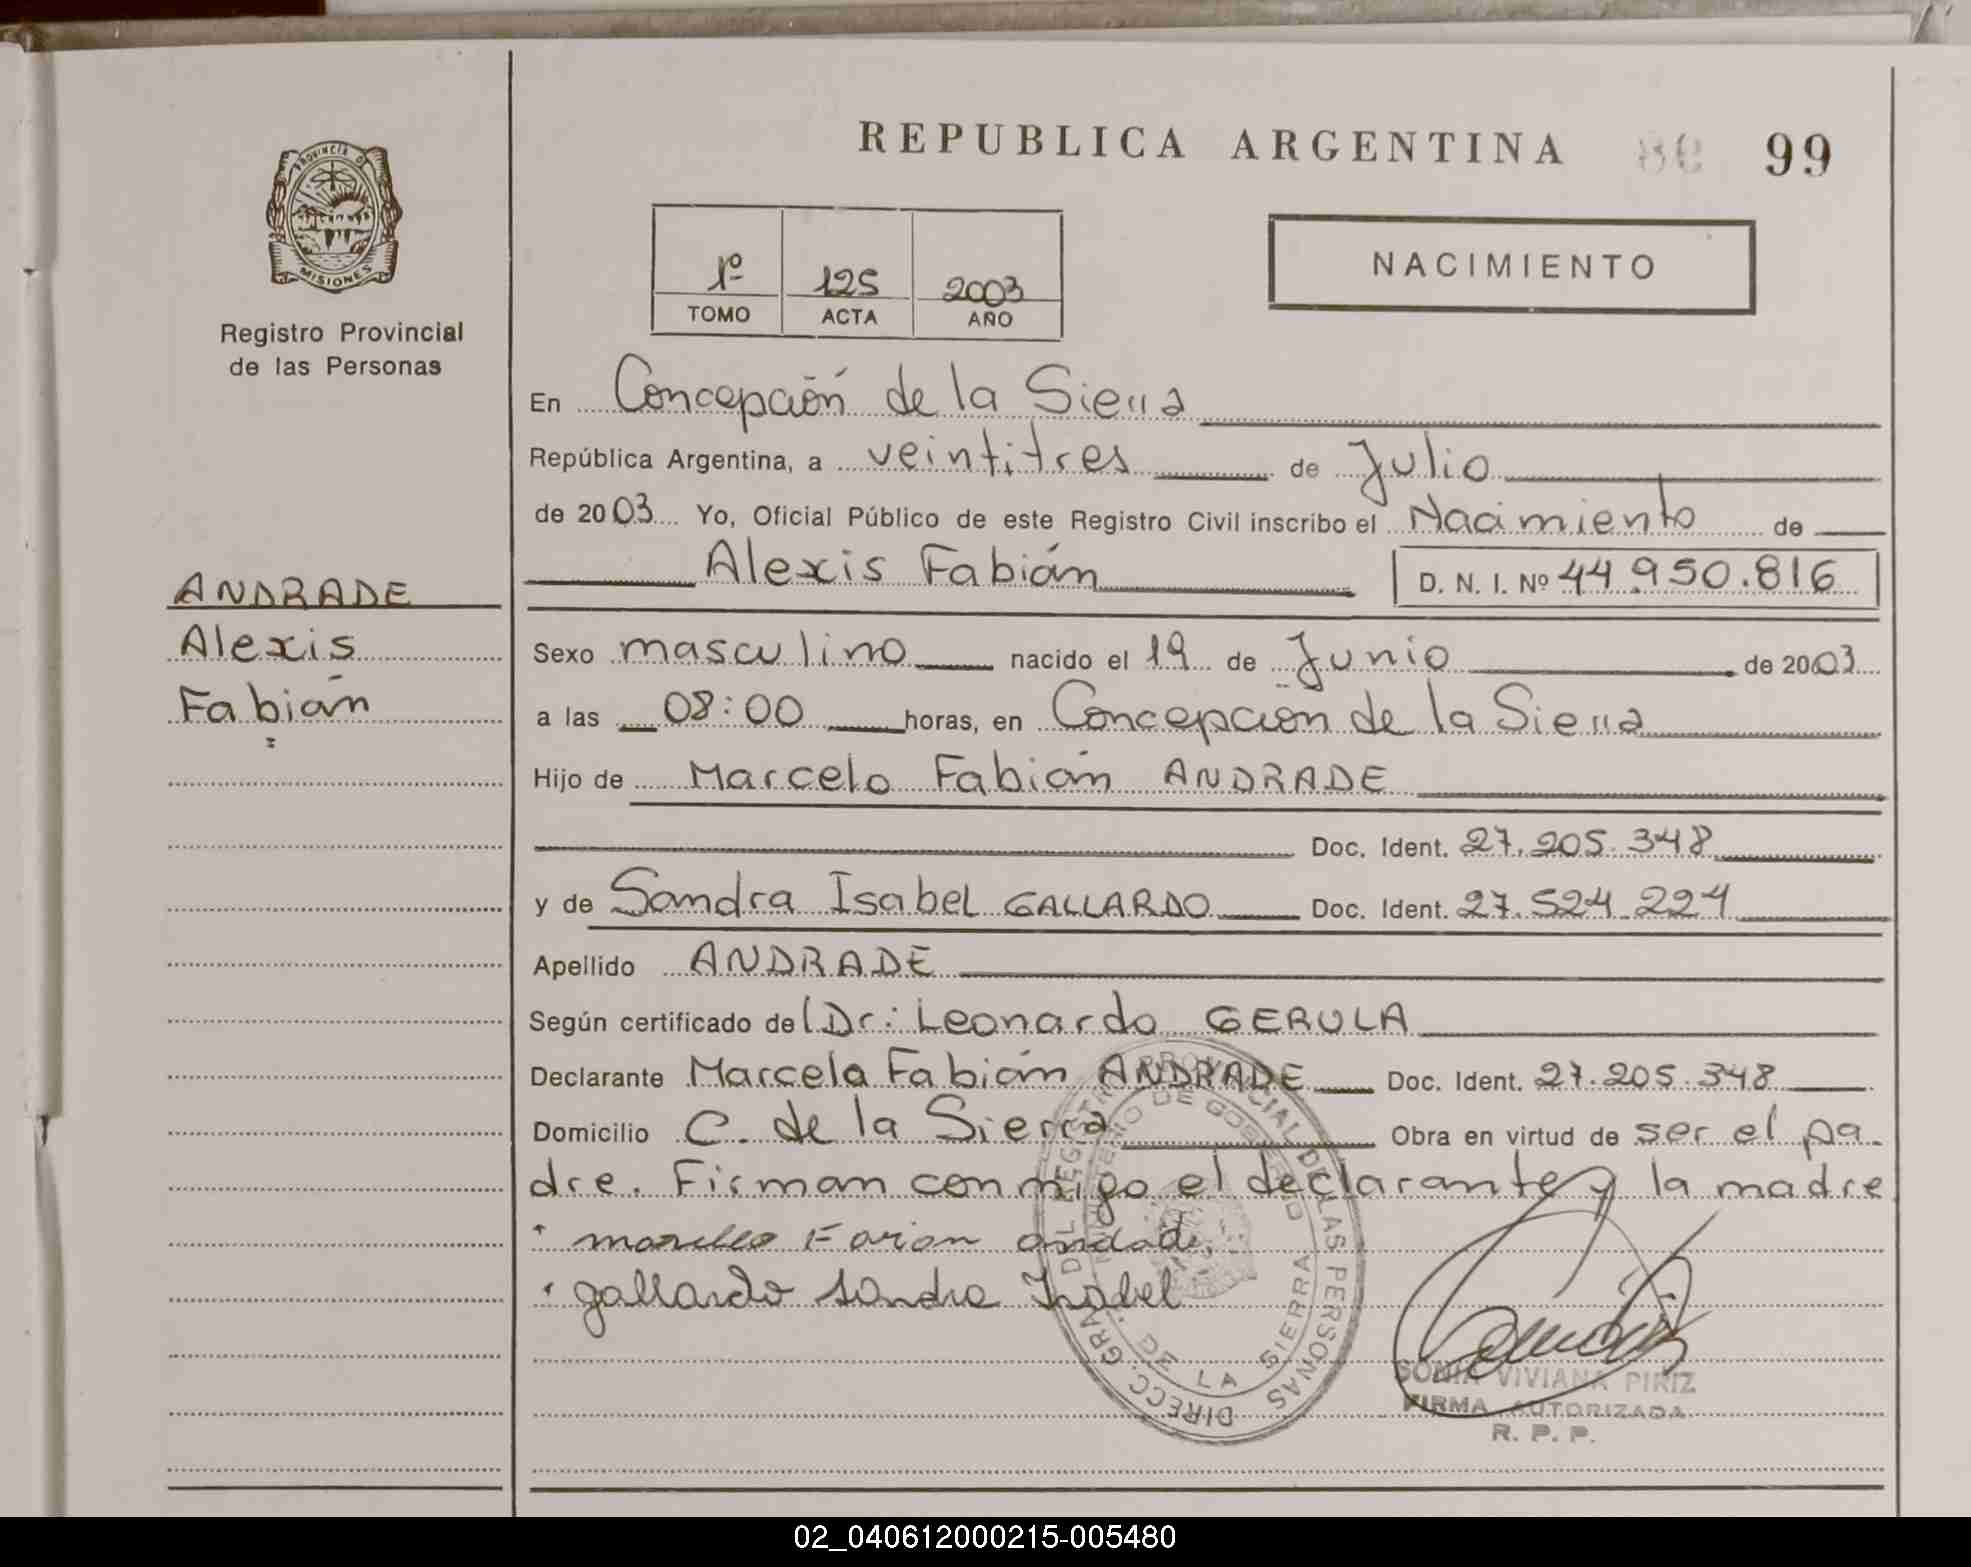 REPUBLICA ARGENTINA 99
PROVINCIA DE
MISIONES
Registro Provincial
de las Personas
1º 125 2003
TOMO ACTA AÑO
NACIMIENTO
En Concepción de la Sierra
República Argentina, a veintitres de Julio
de 2003 Yo, Oficial Público de este Registro Civil inscribo el Nacimiento de
Alexis Fabián D. N. I. Nº 44.950.816
ANDRADE
Alexis
Fabián
Sexo masculino nacido el 19 de Junio de 2003
a las 08:00 horas, en Concepción de la Sierra
Hijo de Marcelo Fabián ANDRADE
Doc. Ident. 27.205.348
y de Sandra Isabel GALLARDO Doc. Ident. 27.524.224
Apellido ANDRADE
Según certificado del Dr: Leonardo GERULA
Declarante Marcelo Fabián ANDRADE Doc. Ident. 27.205.348
Domicilio C. de la Sierra Obra en virtud de ser el pa-
dre. Firman conmigo el declarante y la madre
gallardo sandra Isabel
DIRECC. GRAL DEL REGISTRO PROVINCIAL DE LAS PERSONAS
MINISTERIO DE GOBIERNO
DE LA SIERRA
SONIA VIVIANA PIRIZ
FIRMA AUTORIZADA
R. P. P.
02_040612000215-005480